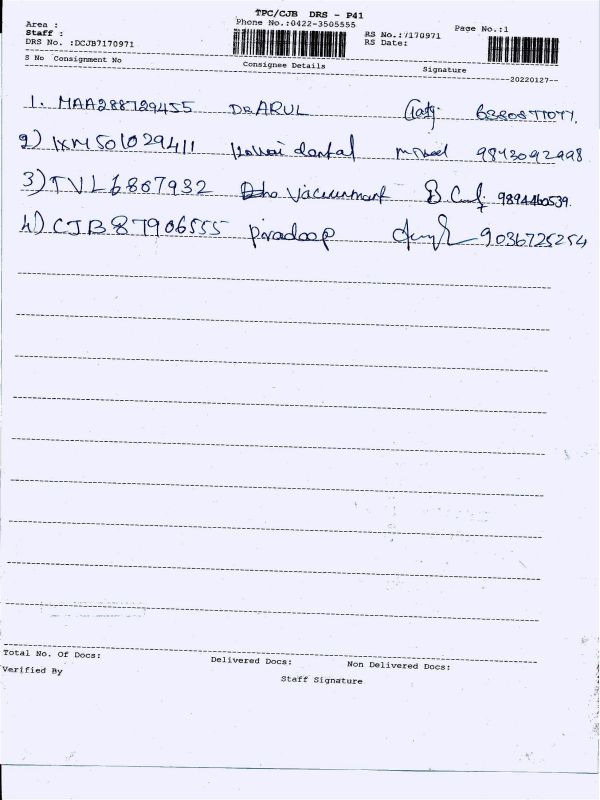 TPC/CJB DRS - P41
Area : Phone No.:0422-3505555 Page No.:1
Staff : RS No.:7170971
DRS No. :DCJB7170971 RS Date:
S No Consignment No Consignee Details Signature
--20220127--
1. MAA288729455 DR ARUL
2) IXM501029411 Kovai dental 9843092998
3) TVL6807932 Vaccumnant 9894460539.
4) CJB87906555 Piradeep 9036725254
Total No. Of Docs: Delivered Docs: Non Delivered Docs:
Verified By Staff Signature